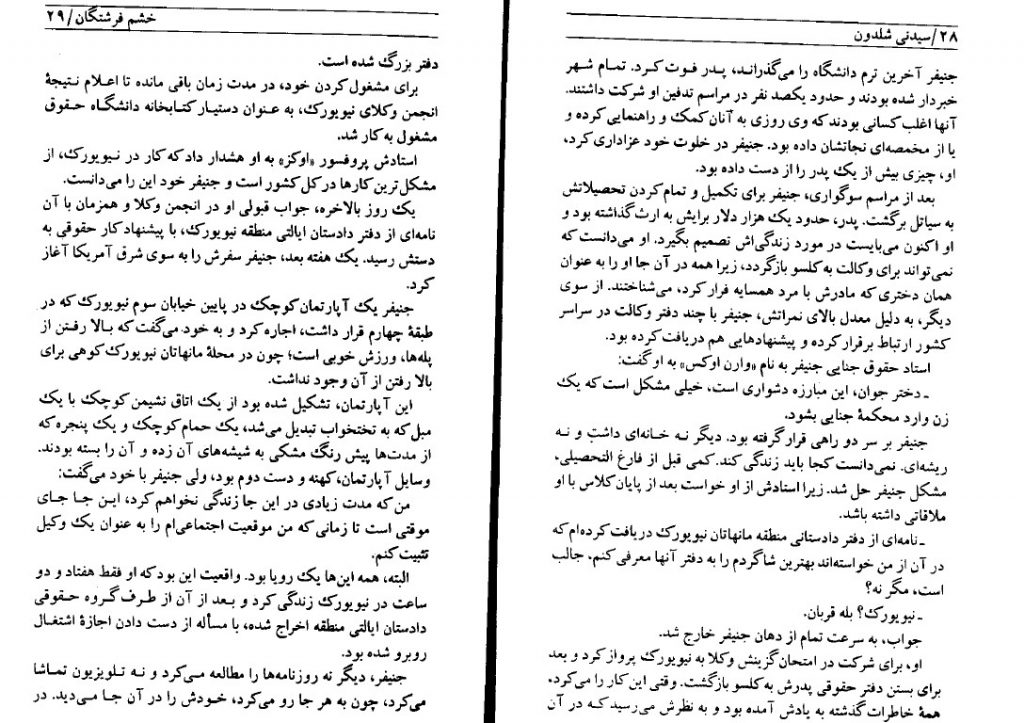 ۲۸/سیدنی شلدون
جنیفر آخرین ترم دانشگاه را می‌گذرانـد، پـدر فـوت کـرد. تمـام شهر
خبردار شده بودند و حدود یکصد نفر در مراسم تدفین او شرکت داشتند.
آنها اغلب کسانی بودند که وی روزی به آنان کمک و راهنمایی کرده و
یا از مخمصه‌ای نجاتشان داده بود. جنیفر در خلوت خود عزاداری کرد،
او، چیزی بیش از یک پدر را از دست داده بود.
بعد از مراسم سوگواری، جنیفر برای تکمیل و تمام کردن تحصیلاتش
به سیاتل برگشت. پدر، حدود یک هزار دلار برایش به ارث گذاشته بود و
او اکنون می‌بایست در مورد زندگی‌اش تصمیم بگیرد. او می‌دانست که
نمی‌تواند برای وکالت به کلسو بازگردد، زیرا همه در آن جا او را به عنوان
همان دختری که مادرش با مرد همسایه فرار کرد، می‌شناختند. از سوی
دیگر، به دلیل معدل بالای نمراتش، جنیفر با چند دفتر وکالت در سراسر
کشور ارتباط برقرار کرده و پیشنهادهایی هم دریافت کرده بود.
استاد حقوق جنایی جنیفر به نام «وارن اوکس» به او گفت:
ـ دختر جوان، این مبارزه دشواری است، خیلی مشکل است که یک
زن وارد محکمۀ جنایی بشود.
جنیفر بر سر دو راهی قرار گرفته بود. دیگر نـه خـانه‌ای داشت و نـه
ریشه‌ای. نمی‌دانست کجا باید زندگی کند. کمی قبل از فارغ التحصیلی،
مشکل جنیفر حل شد. زیرا استادش از او خواست بعد از پایان کلاس با او
ملاقاتی داشته باشد.
ـ نامه‌ای از دفتر دادستانی منطقه مانهاتان نیویورک دریافت کرده‌ام که
در آن از من خواسته‌اند بهترین شاگردم را به دفتر آنها معرفی کنم، جالب
است، مگر نه؟
ـ نیویورک؟ بله قربان.
جواب، به سرعت تمام از دهان جنیفر خارج شد.
او، برای شرکت در امتحان گزینش وکلا به نیویورک پرواز کرد و بعد
برای بستن دفتر حقوقی پدرش به کلسو بازگشت. وقتی این کار را می‌کرد،
همۀ خاطرات گذشته به یادش آمده بود و به نظرش می‌رسید کـه در آن
خشم فرشتگان/۲۹
دفتر بزرگ شده است.
برای مشغول کردن خود، در مدت زمان باقی مانده تا اعـلام نـتیجۀ
انجمن وکلای نیویورک، به عنوان دستیار کتابخانه دانشگـاه حـقوق
مشغول به کار شد.
استادش پروفسور «اوکز» به او هشدار داد که کار در نـیویورک، از
مشکل‌ترین کارها در کل کشور است و جنیفر خود این را می‌دانست.
یک روز بالاخره، جواب قبولی او در انجمن وکلا و همزمان با آن
نامه‌ای از دفتر دادستان ایالتی منطقه نیویورک، با پیشنهاد کار حقوقی به
دستش رسید. یک هفته بعد، جنیفر سفرش را به سوی شرق آمریکا آغاز
کرد.
جنیفر یک آپارتمان کوچک در پایین خیابان سوم نیویورک که در
طبقۀ چهارم قرار داشت، اجاره کرد و به خود می‌گفت که بـالا رفـتن از
پله‌ها، ورزش خوبی است؛ چون در محلۀ مانهاتان نیویورک کوهی برای
بالا رفتن از آن وجود نداشت.
این آپارتمان، تشکیل شده بود از یک اتاق نشیمن کوچک با یک
مبل که به تختخواب تبدیل می‌شد، یک حمام کوچک و یک پنجره که
از مدت‌ها پیش رنگ مشکی به شیشه‌های آن زده و آن را بسته بودند.
وسایل آپارتمان، کهنه و دست دوم بود، ولی جنیفر با خود می‌گفت:
من که مدت زیادی در این جا زندگی نخواهم کرد، ایـن جـا جـای
موقتی است تا زمانی که من موقعیت اجتماعی‌ام را به عنوان یک وکیل
تثبیت کنم.
البته، همه این‌ها یک رویا بود. واقعیت این بود که او فقط هفتاد و دو
ساعت در نیویورک زندگی کرد و بـعد از آن از طـرف گـروه حـقوقی
دادستان ایالتی منطقه اخراج شده، با مسأله از دست دادن اجازۀ اشتغال
روبرو شده بود.
جنیفر، دیگر نه روزنامه‌ها را مطالعه می‌کرد و نـه تـلویزیون تمـاشا
می‌کرد، چون به هر جا رو می‌کرد، خـودش را در آن جـا مـی‌دید. در